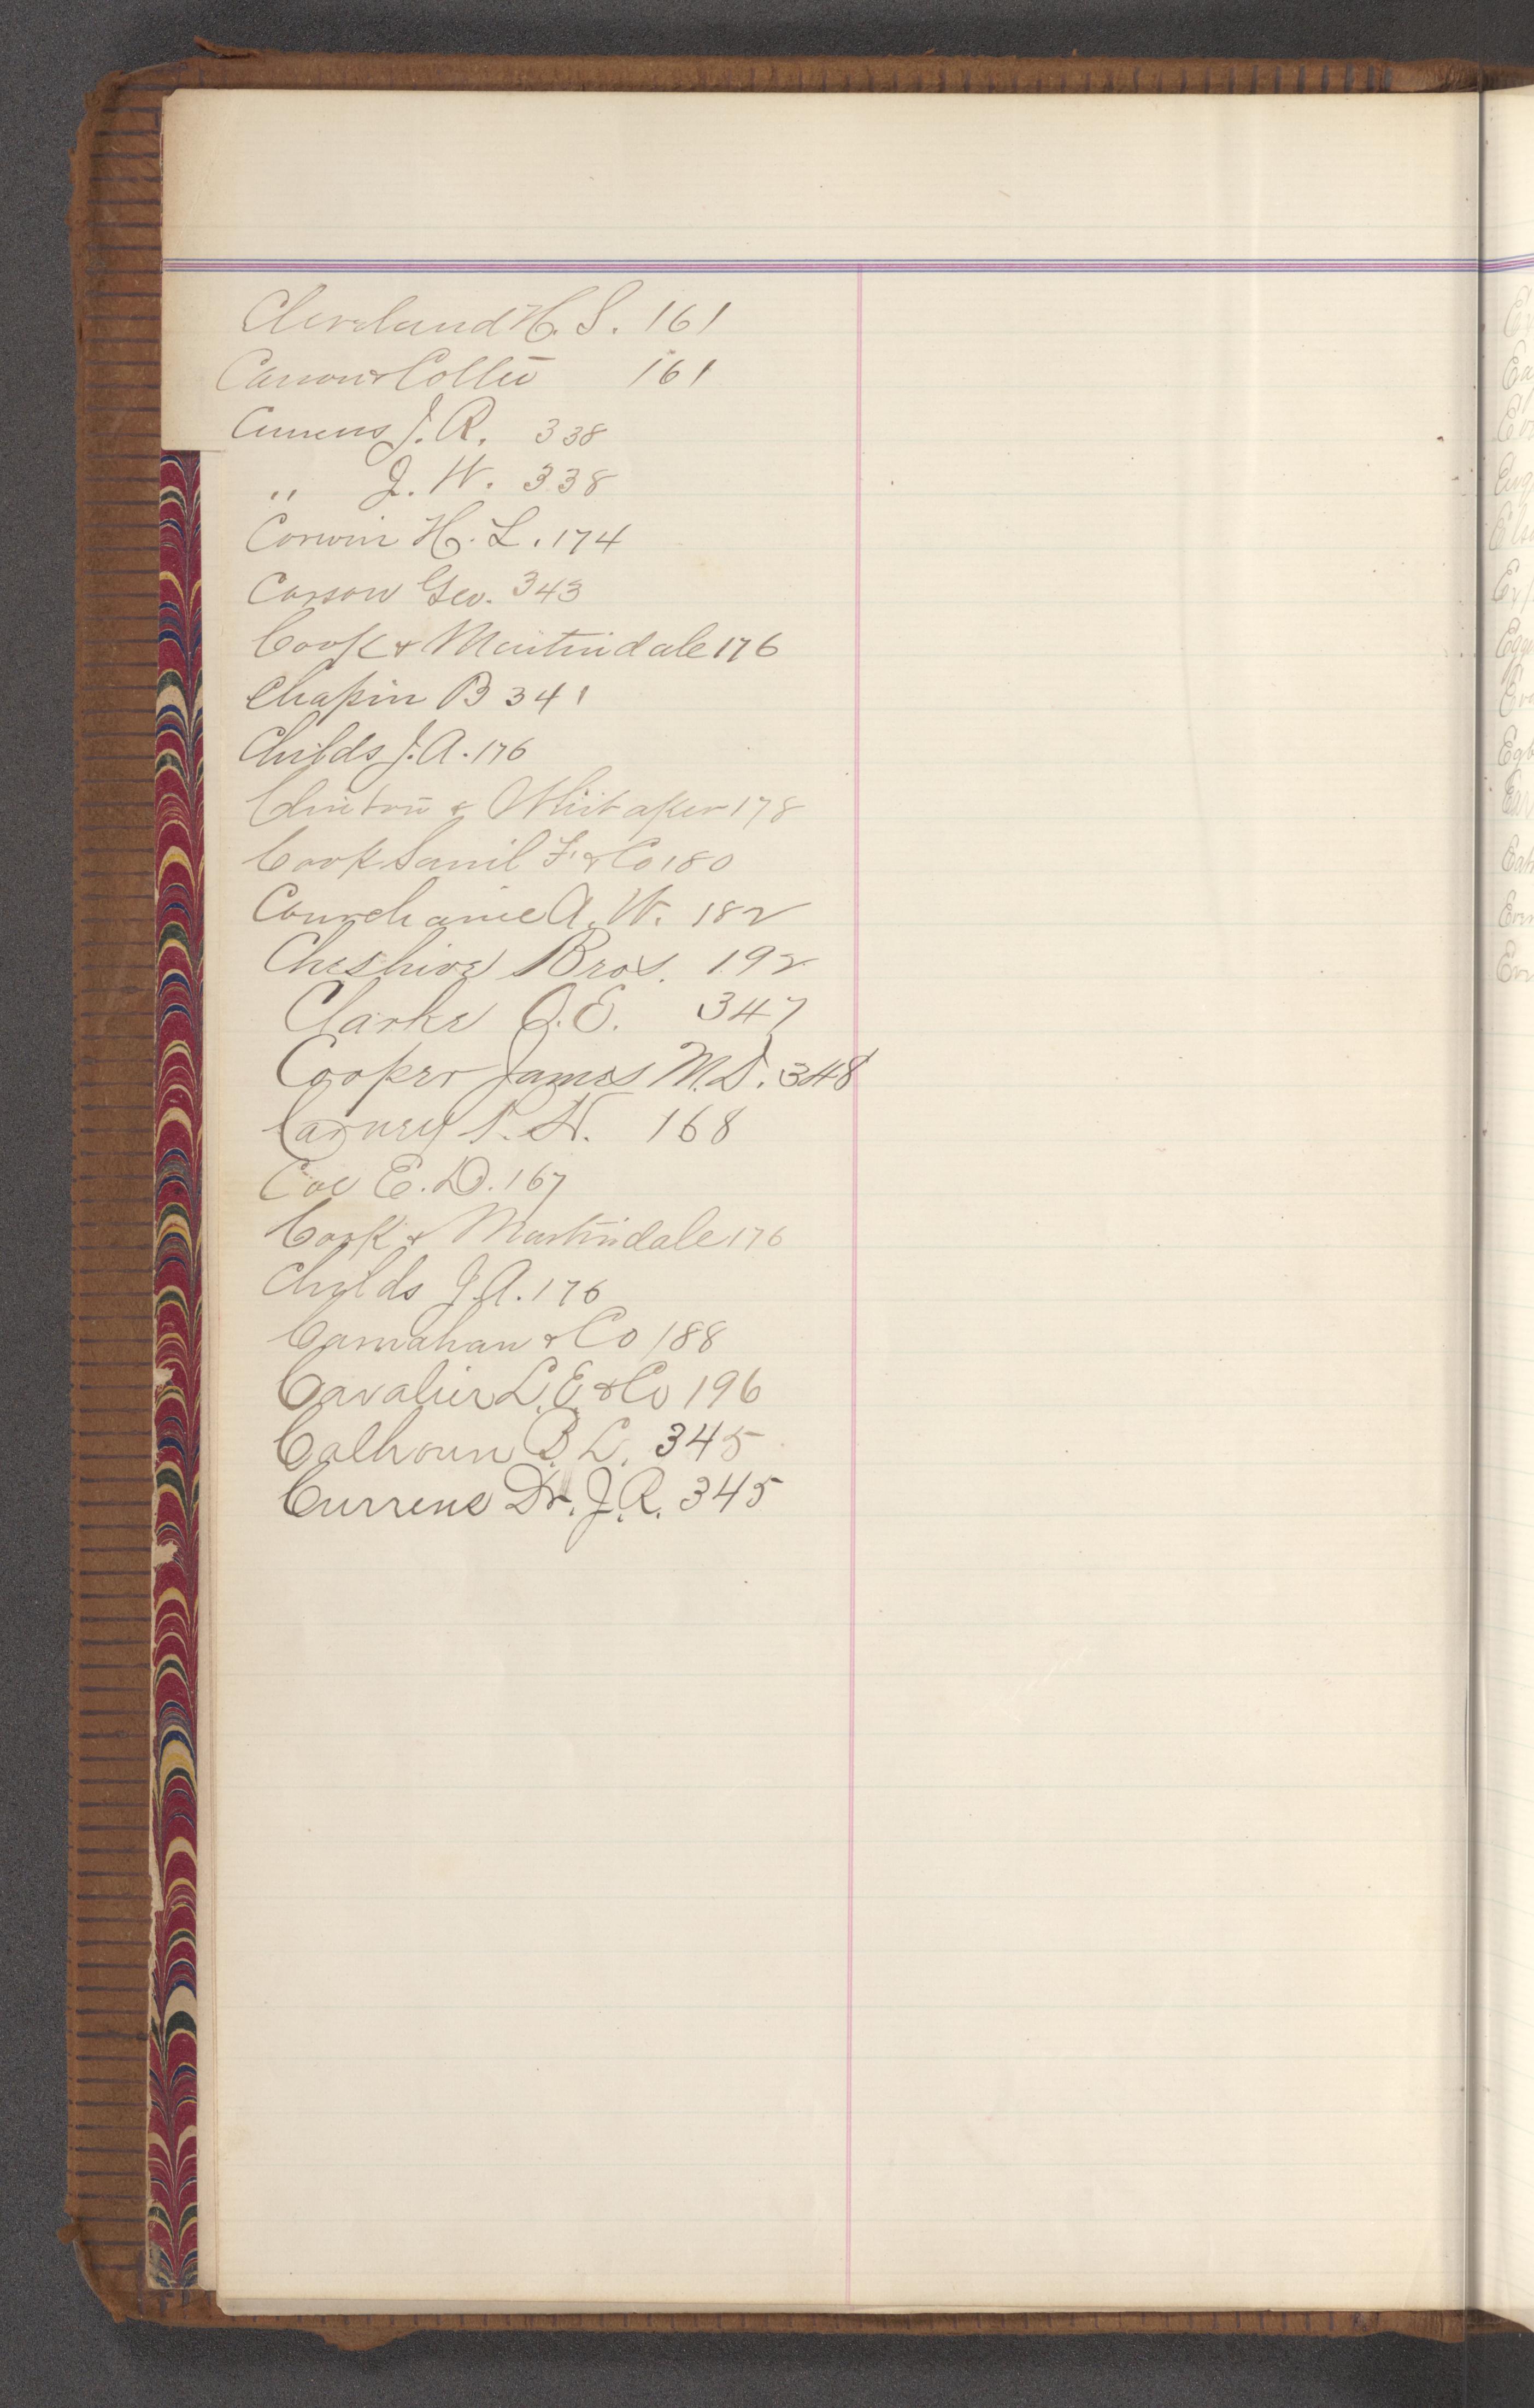 Cleveland H. S. 161
Canon & Collie 161
Currens J. R. 338
" J. W. 338
Corwin H. L. 174
Carson Geo. 343
Cook & Martindale 176
Chapin B 341
Childs J. A. 176
Clinton & Whitaker 178
Cook Saml F. & Co 180
Courchaine A. W. 182
Cheshire Bros. 192
Clarke O. E. 347
Cooper James M.D. 348
Carney P. H. 168
Coe E. D. 167
Cook & Martindale 176
Childs J. A. 176
Carnahan & Co 188
Cavalier L. E. & Co 196
Calhoun B. L. 345
Currens Dr. J. R. 345